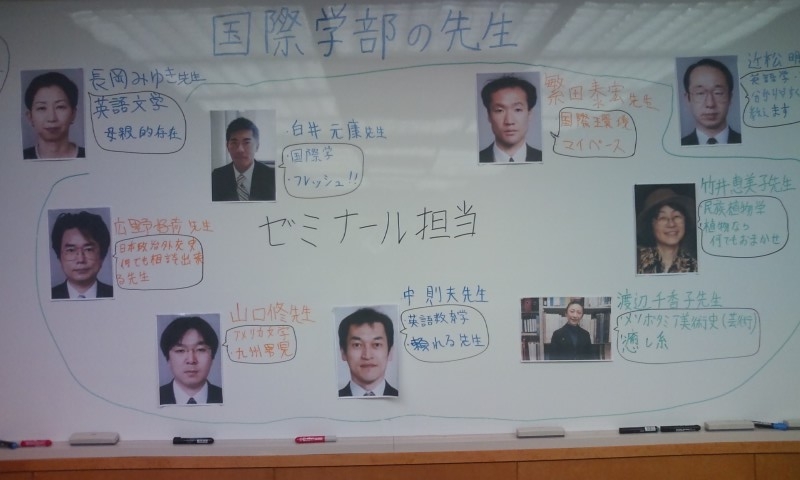 国際学部の先生
長岡みゆき先生
英語文学
母親的存在
・白井 元康先生
・国際学
・フレッシュ!!
繁田泰宏先生
国際環境
マイペース
近松 明
英語学・
教えます
竹井恵美子先生
民族植物学
植物なら
何でもおまかせ
先生
日本政治外交史
何でも相談出来
る先生
ゼミナール担当
山口修先生
アメリカ文学
・九州男児
中 則夫先生
英語教育学
・頼れる先生
渡辺千香子先生
メソポタミア美術史(芸術)
癒し系